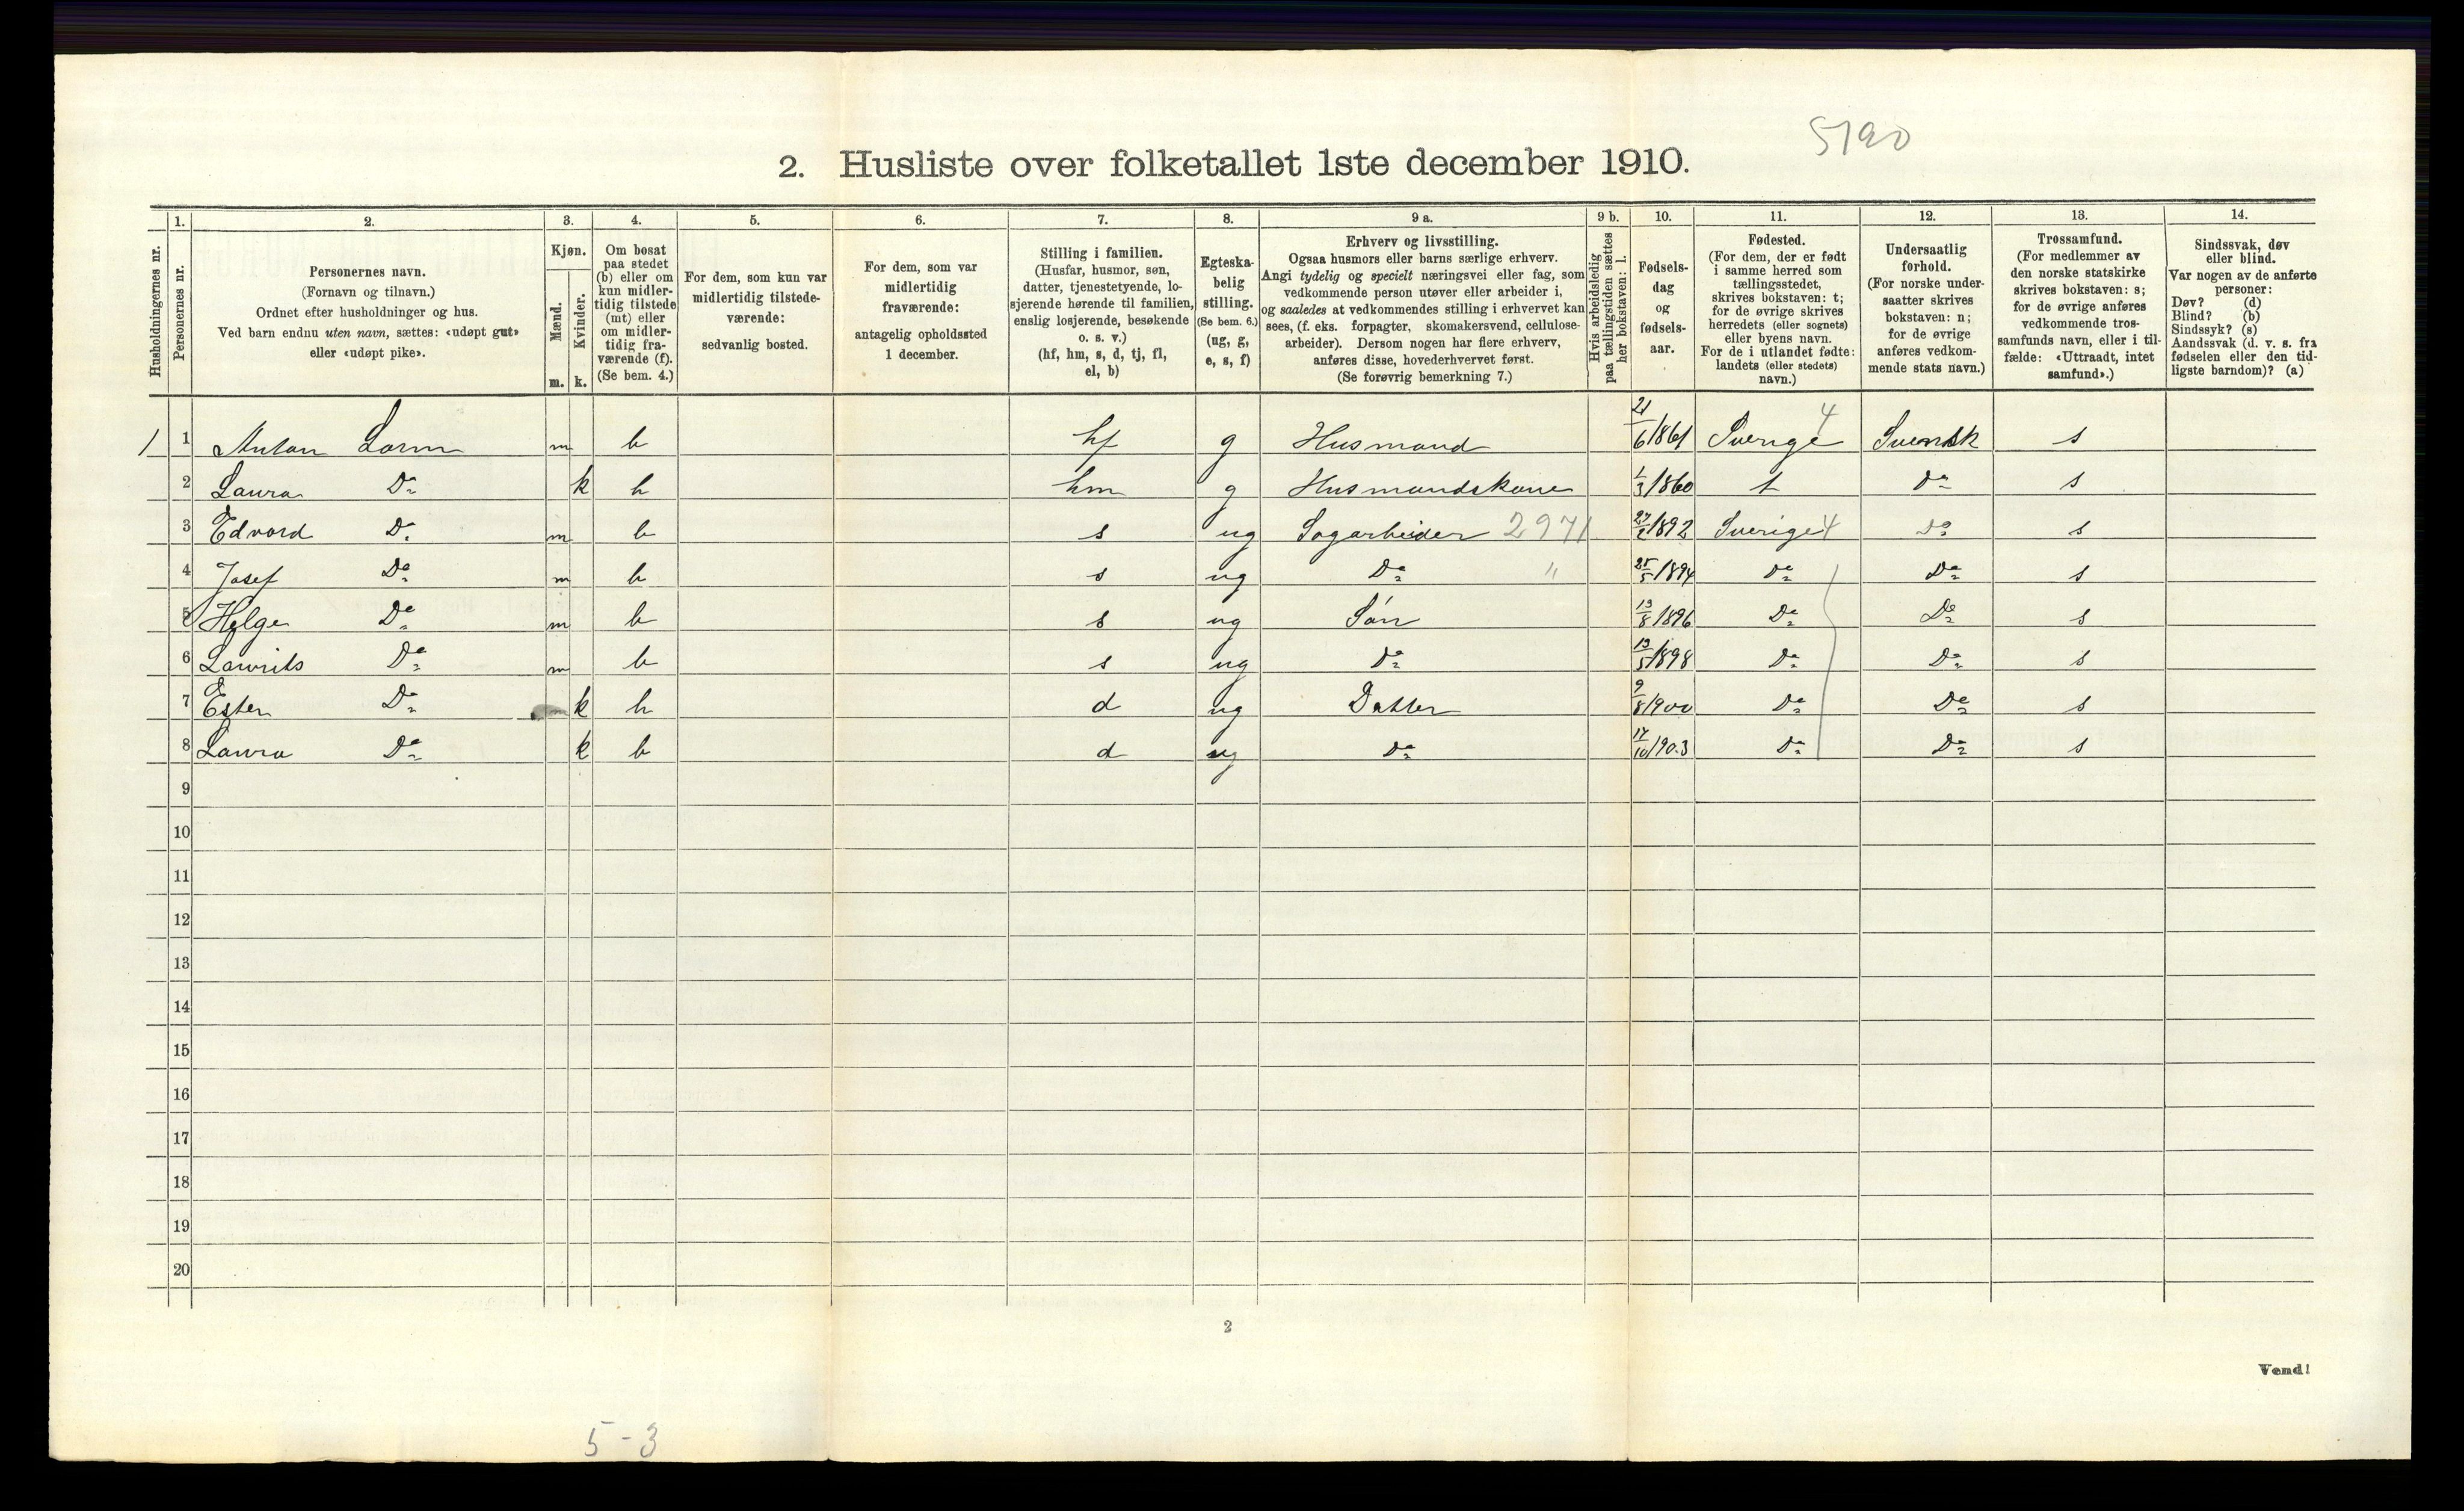 5190
2. Husliste over folketallet 1ste december 1910.
Husholdningernes nr.
1. Personernes nr.
2. Personernes navn.
(Fornavn og tilnavn.)
Ordnet efter husholdninger og hus.
Ved barn endnu uten navn, sættes: «udøpt gut»
eller «udøpt pike».
3. Kjøn.
Mænd. m.
Kvinder. k.
4. Om bosat
paa stedet
(b) eller om
kun midler-
tidig tilstede
(mt) eller
om midler-
tidig fra-
værende (f).
(Se bem. 4.)
5. For dem, som kun var
midlertidig tilstede-
værende:
sedvanlig bosted.
6. For dem, som var
midlertidig
fraværende:
antagelig opholdssted
1 december.
7. Stilling i familien.
(Husfar, husmor, søn,
datter, tjenestetyende, lo-
sjerende hørende til familien,
enslig losjerende, besøkende
o. s. v.)
(hf, hm, s, d, tj, fl,
el, b)
8. Egteska-
belig
stilling.
(Se bem. 6.)
(ug, g,
e, s, f)
9 a. Erhverv og livsstilling.
Ogsaa husmors eller barns særlige erhverv.
Angi tydelig og specielt næringsvei eller fag, som
vedkommende person utøver eller arbeider i,
og saaledes at vedkommendes stilling i erhvervet kan
sees, (f. eks. forpagter, skomakersvend, cellulose-
arbeider). Dersom nogen har flere erhverv,
anføres disse, hovederhvervet først.
(Se forøvrig bemerkning 7.)
9 b. Hvis arbeidsledig
paa tællingstiden sættes
her bokstaven: l.
10. Fødsels-
dag
og
fødsels-
aar.
11. Fødested.
(For dem, der er født
i samme herred som
tællingsstedet,
skrives bokstaven: t;
for de øvrige skrives
herredets (eller sognets)
eller byens navn.
For de i utlandet fødte:
landets (eller stedets)
navn.)
12. Undersaatlig
forhold.
(For norske under-
saatter skrives
bokstaven: n;
for de øvrige
anføres vedkom-
mende stats navn.)
13. Trossamfund.
(For medlemmer av
den norske statskirke
skrives bokstaven: s;
for de øvrige anføres
vedkommende tros-
samfunds navn, eller i til-
fælde: «Uttraadt, intet
samfund».)
14. Sindssvak, døv
eller blind.
Var nogen av de anførte
personer:
Døv? (d)
Blind? (b)
Sindssyk? (s)
Aandssvak (d. v. s. fra
fødselen eller den tid-
ligste barndom)? (a)
1 1 Anton Lorm m b hf g Husmand 21/6 1861 Sverige 4 Svensk s
2 Laura Do k b hm g Husmandskone 1/3 1860 t do s
3 Edvard Do m b s ug Sagarbeider 2971 1892 Sverige 4 Do s
4 Josef Do m b s ug Do " 25/5 1894 Do Do s
5 Helge Do m b s ug Søn 13/8 1896 Do Do s
6 Laurits Do m b s ug Do 13/5 1898 Do Do s
7 Ester Do k b d ug Datter 9/8 1900 Do Do s
8 Laura Do k b d ug Do 17/10 1903 Do Do s
9
10
11
12
13
14
15
16
17
18
19
20
2
Vend!
5-3